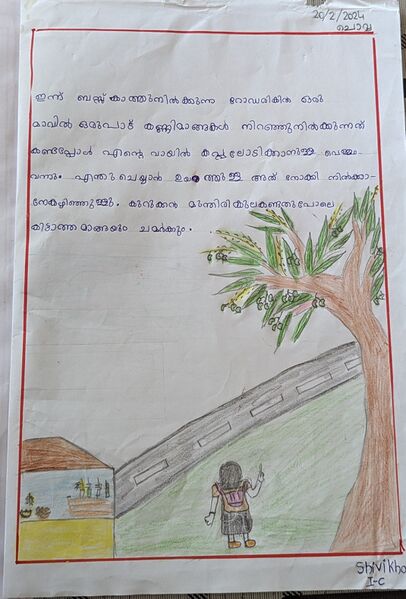 20/2/2024
ചൊവ്വ
ഇന്ന് ബസ്സ് കാത്തുനിൽക്കുന്ന റോഡരികിൽ ഒരു
മാവിൽ ഒരുപാട് കണ്ണിമാങ്ങകൾ നിറഞ്ഞുനിൽക്കുന്നത്
കണ്ടപ്പോൾ എന്റെ വായിൽ കപ്പലോടിക്കാനുള്ള വെള്ളം
വന്നു. എന്തു ചെയ്യാൻ ഉയരത്തുള്ള അത് നോക്കി നിൽക്കാ
നേകഴിഞ്ഞുള്ളൂ. കുറുക്കൻ മുന്തിരികുലകണ്ടതുപോലെ
കിട്ടാത്ത മാങ്ങയും ചമർക്കും.
Shivikha
I-C